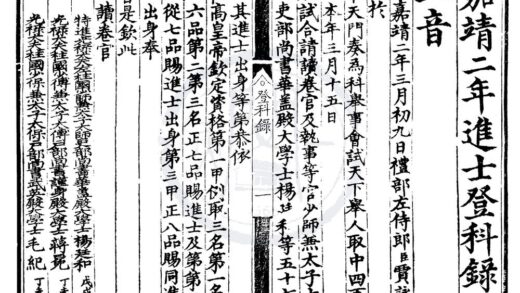 嘉靖二年進士登科録
玉音
嘉靖二年三月初九日禮部左侍郎臣賈詠
於
天門奏為科舉事會試天下舉人取中四百
試合請讀卷官及執事等官少師兼太子太
吏部尚書華盖殿大學士楊廷和等五十七
本年三月十五日
其進士出身等第恭依
高皇帝欽定資格第一甲例取三名第一名
六品第二第三名正七品賜進士及第第
從七品賜進士出身第三甲正八品賜同進
出身奉
旨是欽此
讀卷官
特進光禄大夫柱國少師兼太子太師吏部尚書華盖殿大學士楊廷和 戊戌
光禄大夫柱國少傅兼太子太傅戶部尚書謹身殿大學士蔣冕 丁未
光禄大夫柱國少保兼太子太保戶部尚書武英殿大學士毛紀
登科錄
一